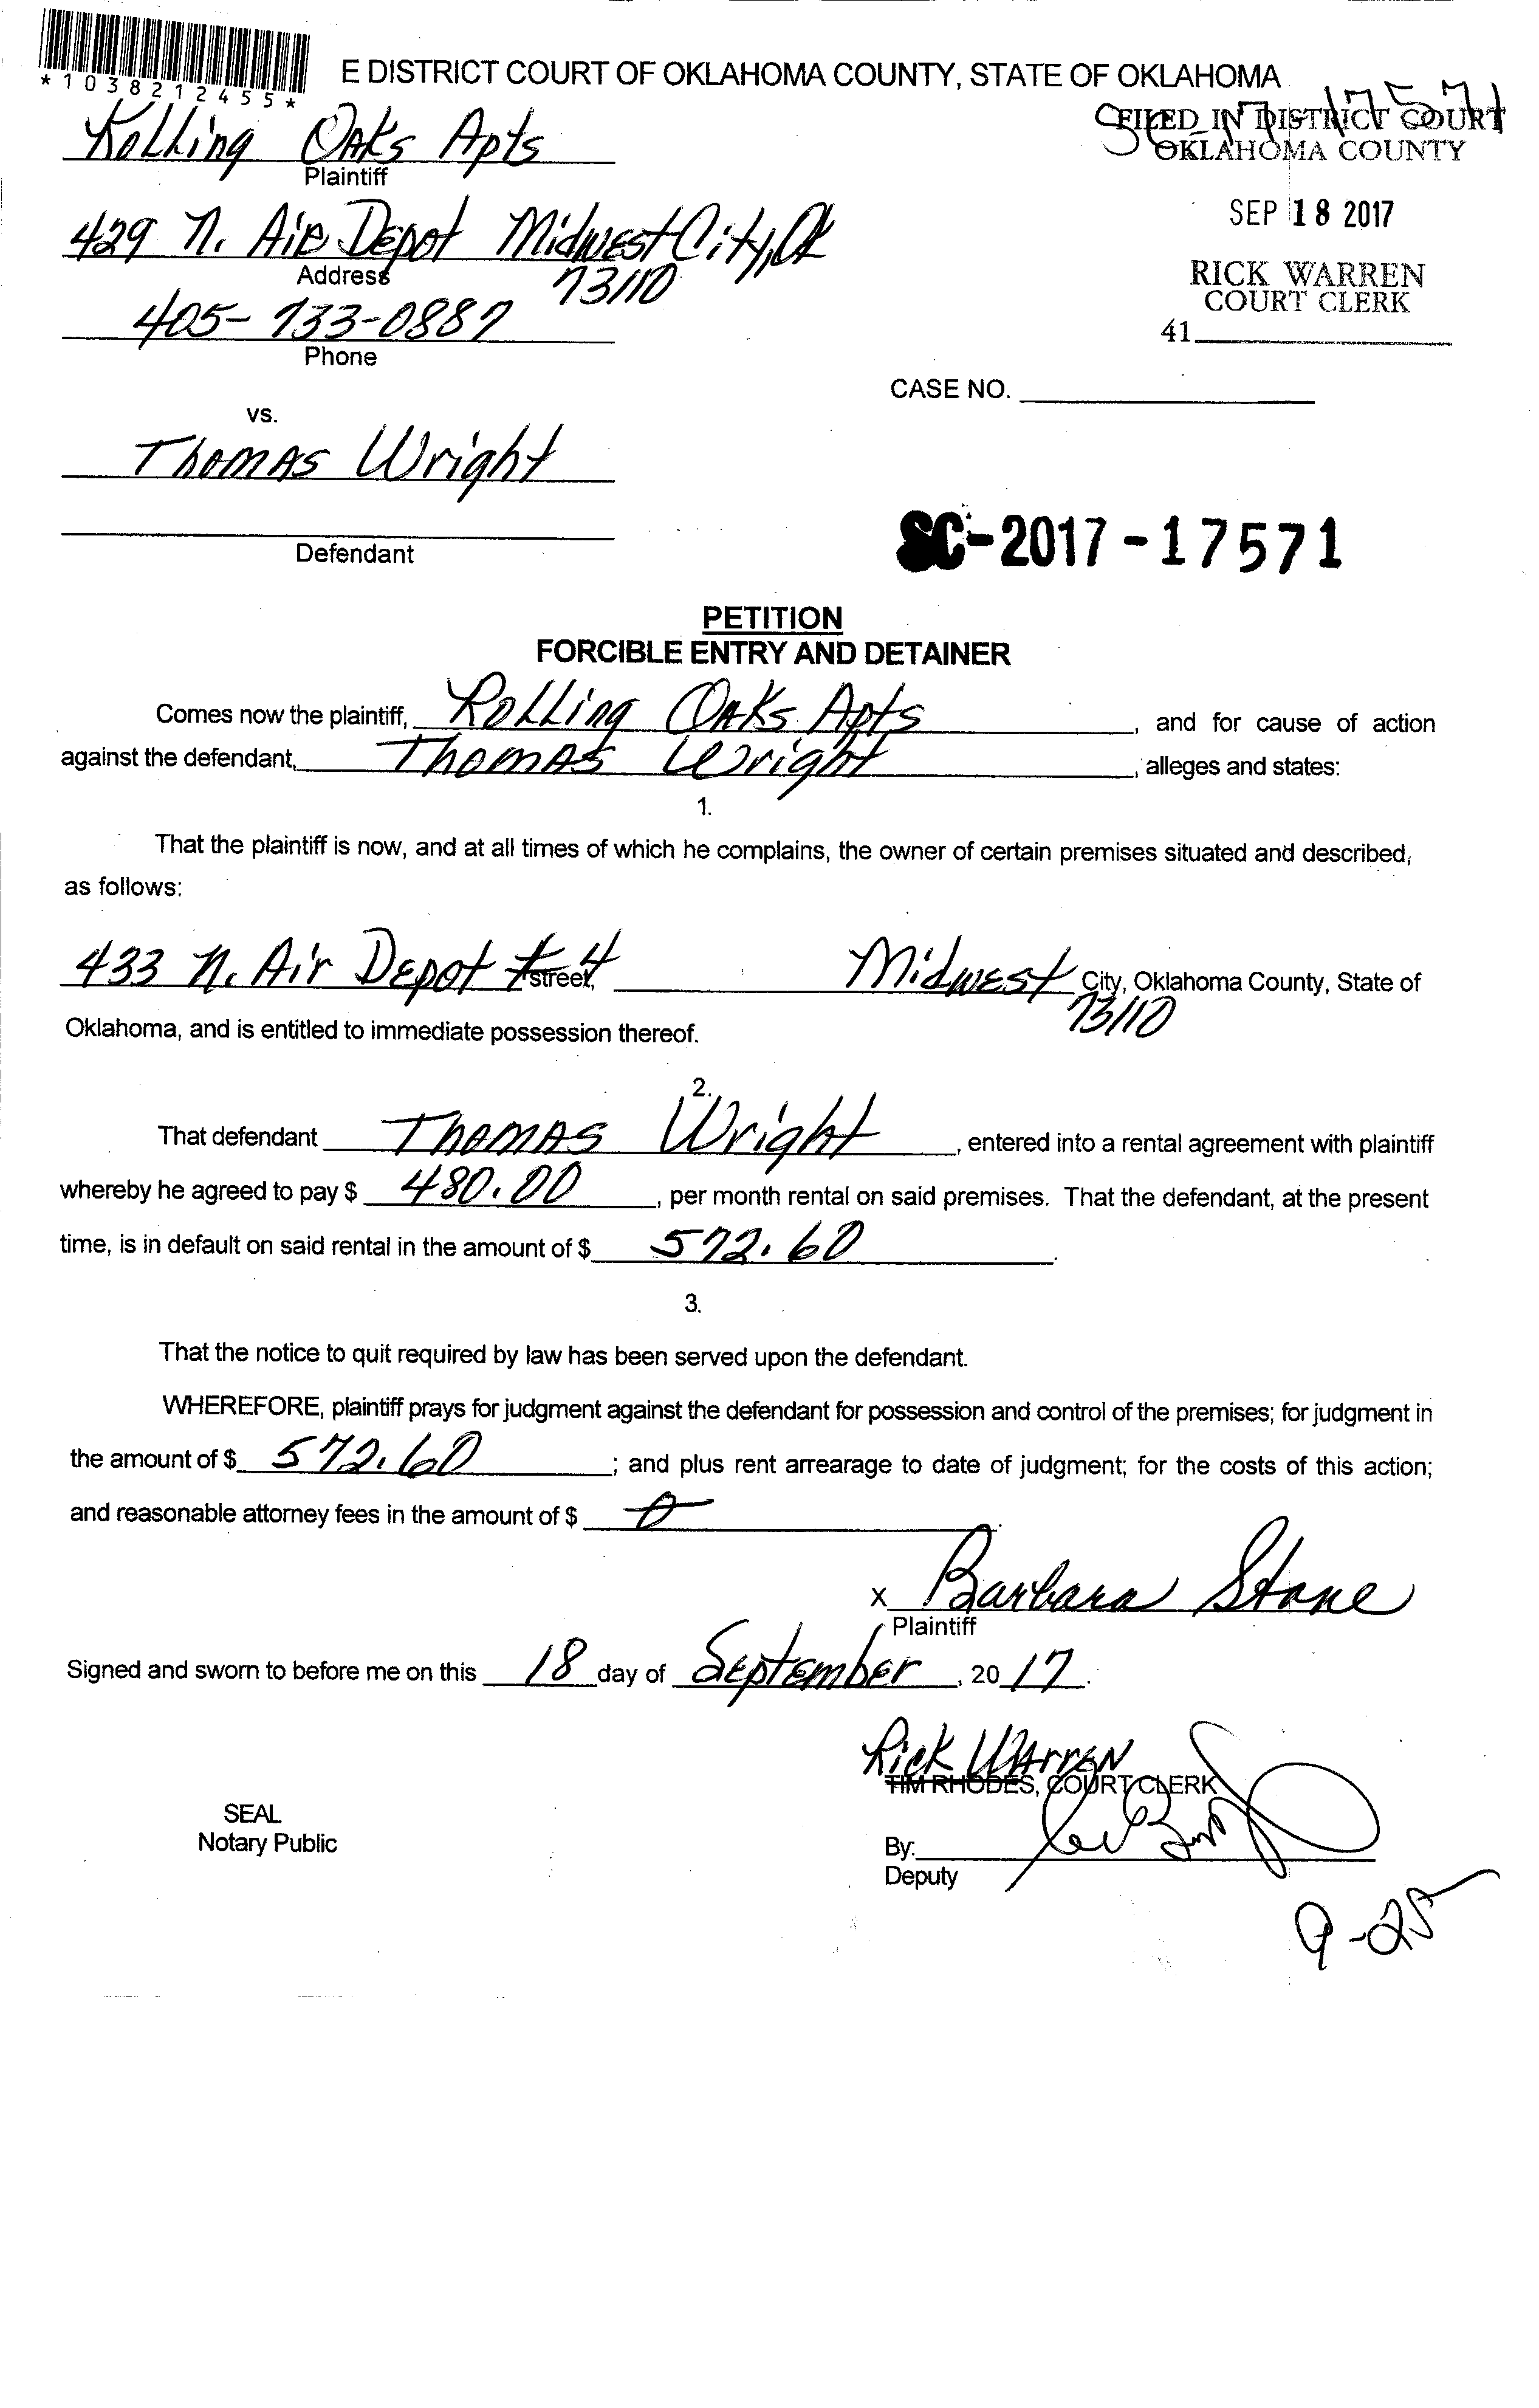 *1038212455*
E DISTRICT COURT OF OKLAHOMA COUNTY, STATE OF OKLAHOMA
SC 17 17571
FILED IN DISTRICT COURT
OKLAHOMA COUNTY
Rolling Oaks Apts
Plaintiff
SEP 18 2017
429 N. Air Depot Midwest City, Ok
73110
Address
RICK WARREN
COURT CLERK
41
405-733-0887
Phone
CASE NO.
vs.
Thomas Wright
Defendant
SC-2017-17571
PETITION
FORCIBLE ENTRY AND DETAINER
Comes now the plaintiff, Rolling Oaks Apts, and for cause of action
against the defendant, Thomas Wright, alleges and states:
1.
That the plaintiff is now, and at all times of which he complains, the owner of certain premises situated and described,
as follows:
433 N. Air Depot #4 street, Midwest City, Oklahoma County, State of
73110
Oklahoma, and is entitled to immediate possession thereof.
2.
That defendant Thomas Wright, entered into a rental agreement with plaintiff
whereby he agreed to pay $ 480.00, per month rental on said premises. That the defendant, at the present
time, is in default on said rental in the amount of $ 572.60.
3.
That the notice to quit required by law has been served upon the defendant.
WHEREFORE, plaintiff prays for judgment against the defendant for possession and control of the premises; for judgment in
the amount of $ 572.60; and plus rent arrearage to date of judgment; for the costs of this action;
and reasonable attorney fees in the amount of $ 0.
x Barbara Stone
Plaintiff
Signed and sworn to before me on this 18 day of September, 2017.
Rick Warren
TIM RHODES, COURT CLERK
SEAL
Notary Public
By:
Deputy